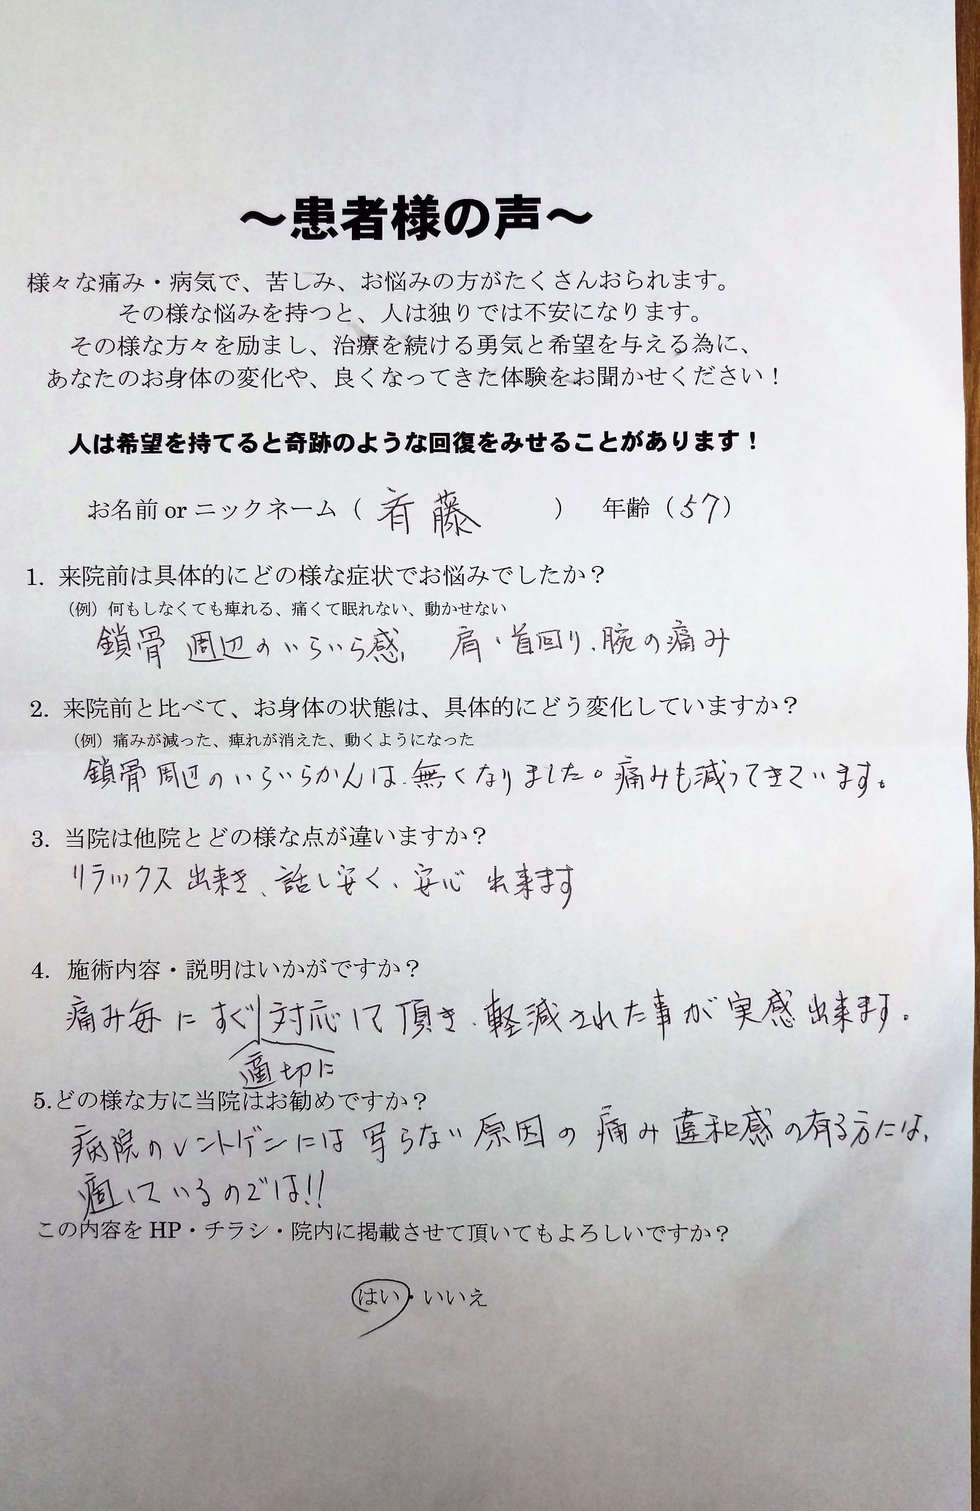 ～患者様の声～
様々な痛み・病気で、苦しみ、お悩みの方がたくさんおられます。
その様な悩みを持つと、人は独りでは不安になります。
その様な方々を励まし、治療を続ける勇気と希望を与える為に、
あなたのお身体の変化や、良くなってきた体験をお聞かせください！
人は希望を持てると奇跡のような回復をみせることがあります！
お名前 or ニックネーム（ 斉藤 ） 年齢（57）
1. 来院前は具体的にどの様な症状でお悩みでしたか？
（例）何もしなくても痺れる、痛くて眠れない、動かせない
鎖骨周辺のいらいら感、 肩・首回り、腕の痛み
2. 来院前と比べて、お身体の状態は、具体的にどう変化していますか？
（例）痛みが減った、痺れが消えた、動くようになった
鎖骨周辺のいらいらかんは、無くなりました。痛みも減ってきています。
3. 当院は他院とどの様な点が違いますか？
リラックス出来き、話し安く、安心出来ます
4. 施術内容・説明はいかがですか？
痛み毎にすぐ対応して頂き、軽減された事が実感出来ます。
適切に
5.どの様な方に当院はお勧めですか？
病院のレントゲンには写らない原因の痛み違和感の有る方には、
適しているのでは!!
この内容を HP・チラシ・院内に掲載させて頂いてもよろしいですか？
はい・いいえ